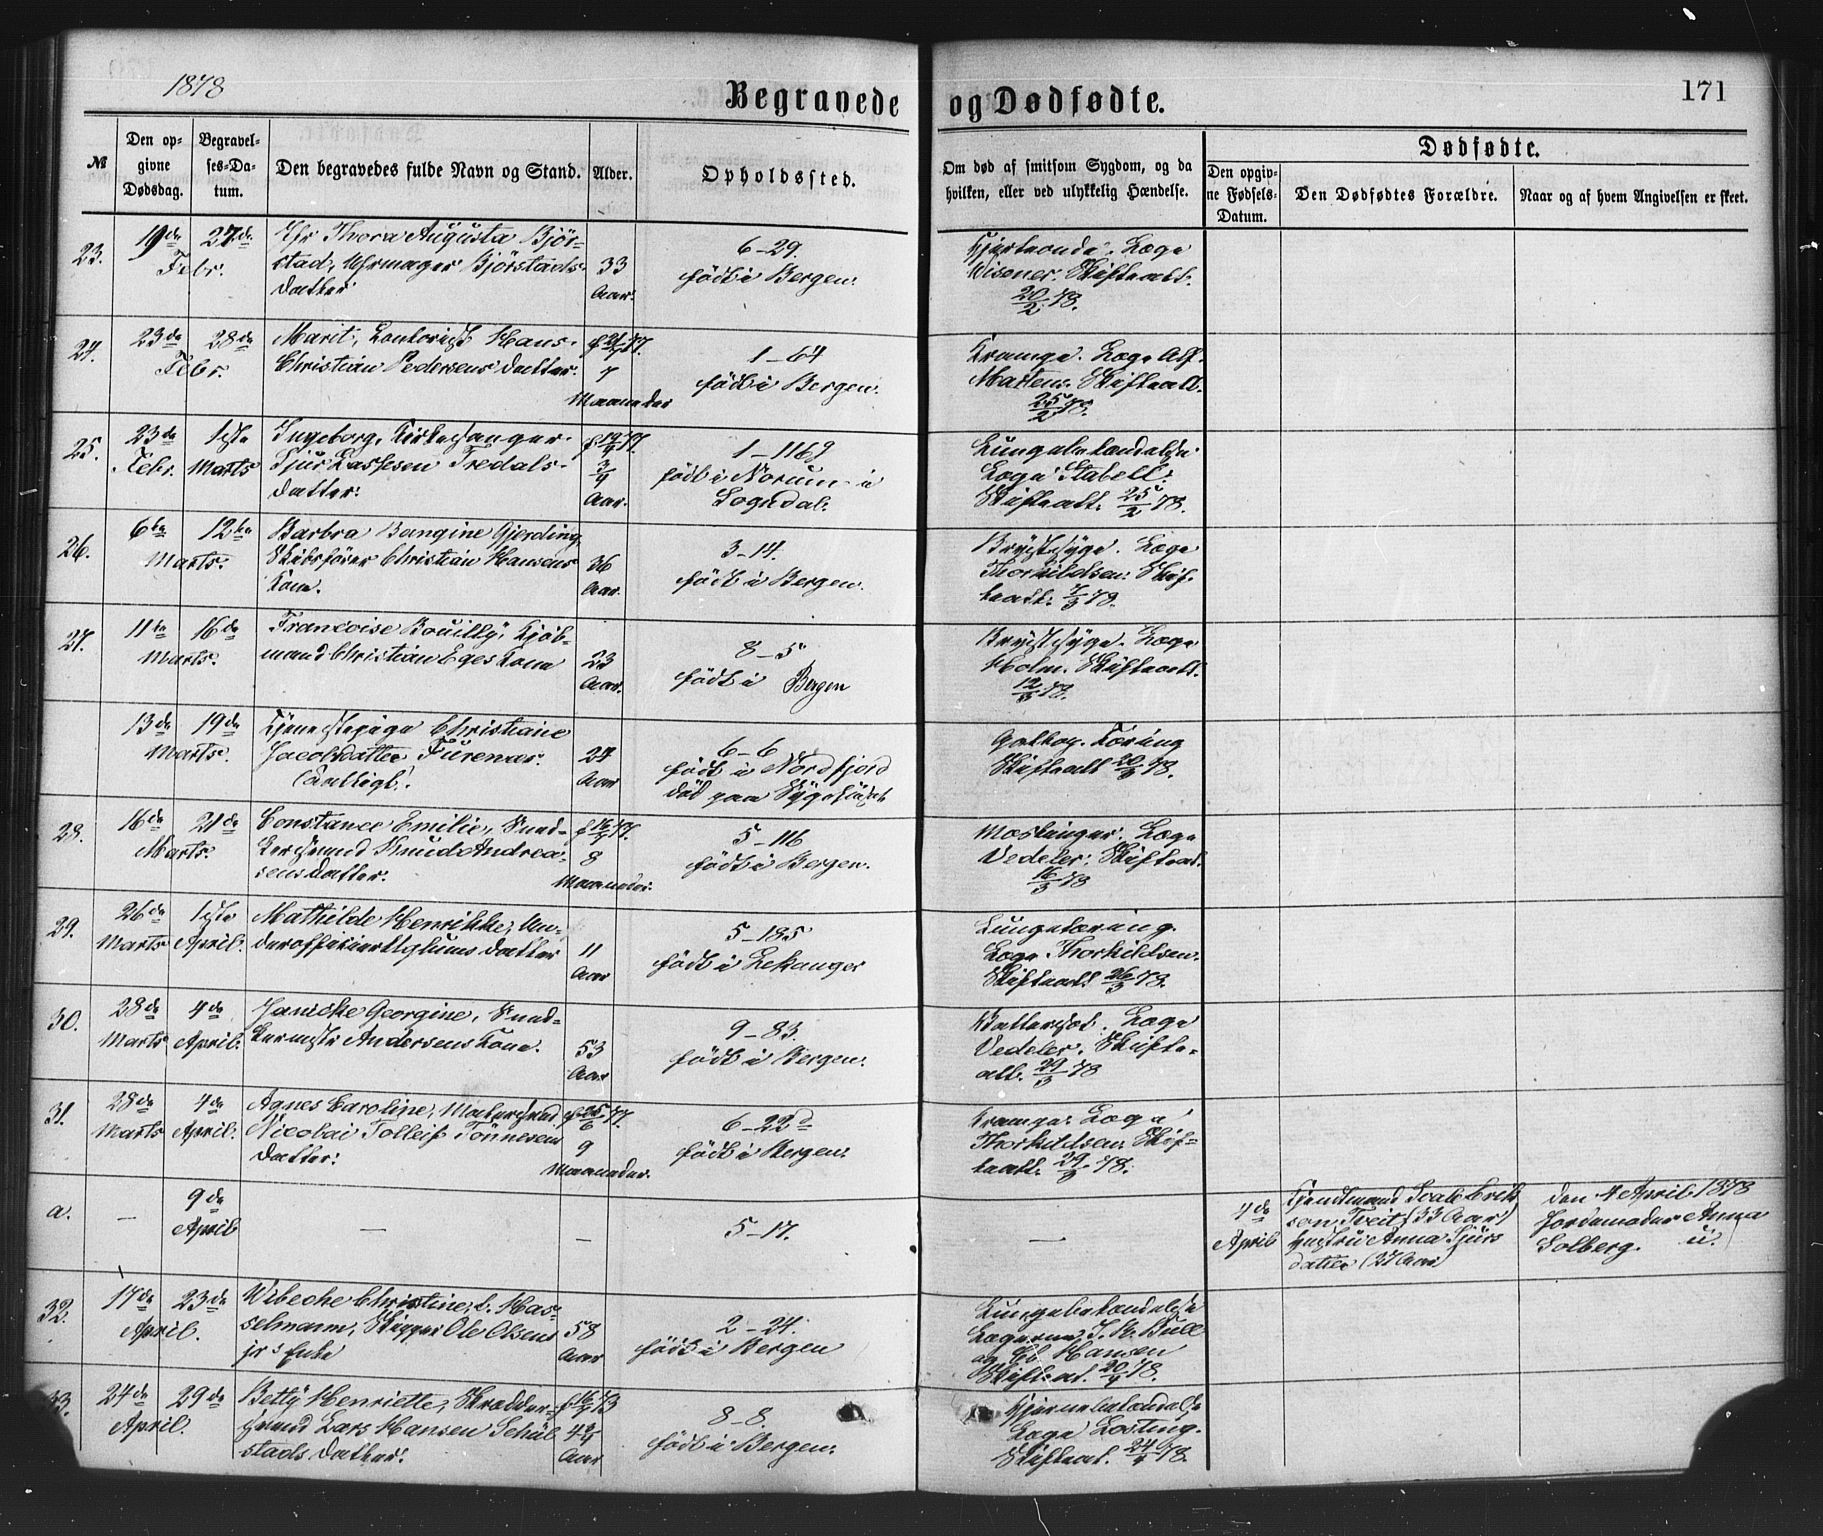 1878
Begravede og Dødfødte.
171
№
Den opgivne Dødsdag.
Begravelses-Datum.
Den begravedes fulde Navn og Stand.
Alder.
Opholdssted.
Om død af smitsom Sygdom, og da hvilken, eller ved ulykkelig Hændelse.
Dødfødte.
Den opgivne Fødsels-Datum.
Den Dødfødtes Forældre.
Naar og af hvem Angivelsen er skeet.
23.
19de 27de
Febr.
Jfr Thora Augusta Bjør-
stad, Uhrmager Bjørstads
Datter
33
Aar.
6–29.
født i Bergen.
Hjerteonde. Læge
Wisener. Skifteatt.
20/2 78.
24.
23de 28de
Febr.
Marit, Contorist Hans
Christian Pedersens Datter.
7
Maaneder
1–64
født i Bergen.
Krampe. Læge Alf.
Martens. Skifteatt.
25/2 78.
25.
23de Febr.
1ste Marts
Ingeborg, Kirkesanger
Sjur Lassesen Fredals
Datter.
f 19/4 77.
3/4
Aar.
1–1169
født i Norum i
Sogndal.
Lungebetændelse
Læge Stabell.
Skifteatt. 25/2 78.
26.
6te 12te
Marts.
Barbra Bangine Gjerding,
Skibsfører Christian Hansens
Kone.
36
Aar.
3–14.
født i Bergen.
Brystsyge. Læge
Thorkildsen. Skif-
teatt. 7/3 78.
27.
11te 16de
Marts.
Francoise Bouilly, Kjøb-
mand Christian Eges Kone
23
Aar.
8–5
født i Bergen
Brystsyge. Læge
Holm. Skifteatt.
12/3 78.
13de 19de
Marts.
Tjenestepige Christiane
Jacobsdatter Furenæs.
24
Aar
6–6
født i Nordfjord
død paa Sygehuset
Galop. Tæring
Skifteatt 20/3 78.
28.
16de 21de
Marts.
Constance Emilie, Sned-
kersvend Knud Andrea-
sens Datter.
f 16/7 77.
8
Maaneder.
5–116
født i Bergen.
Meslinger. Læge
Vedeler. Skifteatt.
16/3 78
29.
26de Marts
1ste April.
Mathilde Henrikke, Un-
derofficier Uglums Datter
11
Aar
5–185
født i Lekanger
Lungetæring.
Læge Thorkildsen.
Skifteatt 26/3 78.
30.
28de Marts
4de April.
Janicke Georgine, Sned-
kermester Andersens Kone.
53
Aar
9–83.
født i Bergen.
Læge
Vedeler. Skifte-
att. 29/3 78
31.
28de Marts
4de April.
Agnes Caroline, Malersvend
Nicolai Tolleif Tønnesens
Datter.
f 25/6 77.
9
Maaneder.
6–22d
født i Bergen.
Krampe. Læge
Thorkildsen. Skif-
teatt. 29/3 78.
a.
—
9de
April
—
—
5–17.
—
4de
April
Tjendmand Iver Erik
sen Tveit (33 Aar)
Hustru Anna Sjurs
datter (27 Aar)
den 4 April 1878
Jordemoder Anna
Solberg.
32.
17de 23de
April.
Wibecke Christine, f. Has-
selmann, Skipper Ole Olsens
jr's Enke
58
Aar
2–24.
født i Bergen
Lungebetændelse
Lægerne J. B. Bull
og Hansen
Skifteat. 20/4 78.
33.
24de 29de
April.
Betty Henriette, Skrædder-
svend Lars Hansen Schul
stads Datter.
4 3/4
Aar
8–8.
født i Bergen.
Hjernebetændelse
Læge Losting.
Skifteat. 24/4 78.